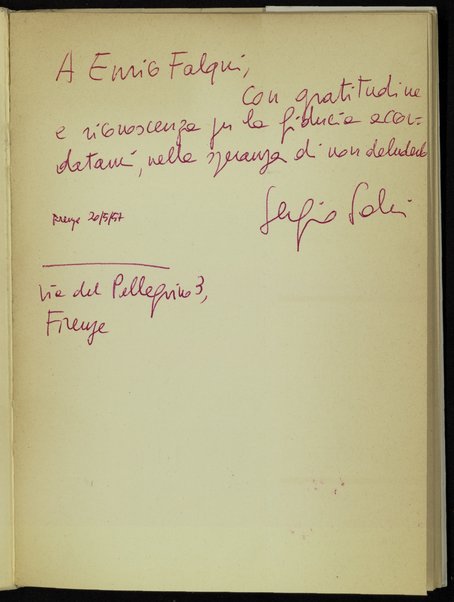 A Enrico Falqui,
con gratitudine
e riconoscenza per la fiducia accor-
datami, nella speranza di non deluderlo
Sergio Salvi
Firenze 20/5/57
Via del Pellegrino 3,
Firenze